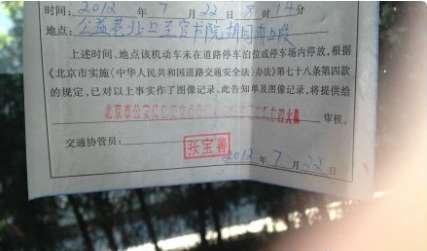 时间：2012 年 7 月 22 日 8 时 14 分
地点：公益巷北口至官书院胡同南口段
上述时间、地点该机动车未在道路停车泊位或停车场内停放，根据
《北京市实施〈中华人民共和国道路交通安全法〉办法》第七十八条第四款
的规定，已对以上事实作了图像记录，此告知单及图像记录，将提供给
北京市公安局公安 审核。
交通协管员： 张宝善
2012 年 7 月 22 日